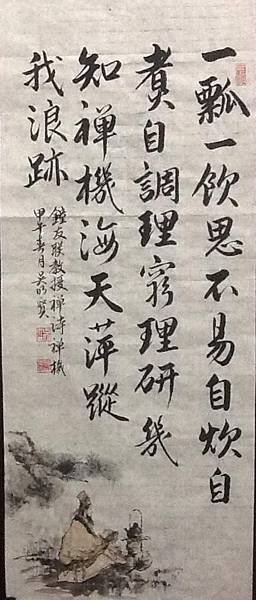 一瓢一飲思不易自炊自
煮自調理窮理研幾
知禪機海天萍蹤
我浪跡
鐘友聯教授禪詩禪機
甲午春月吳明賢